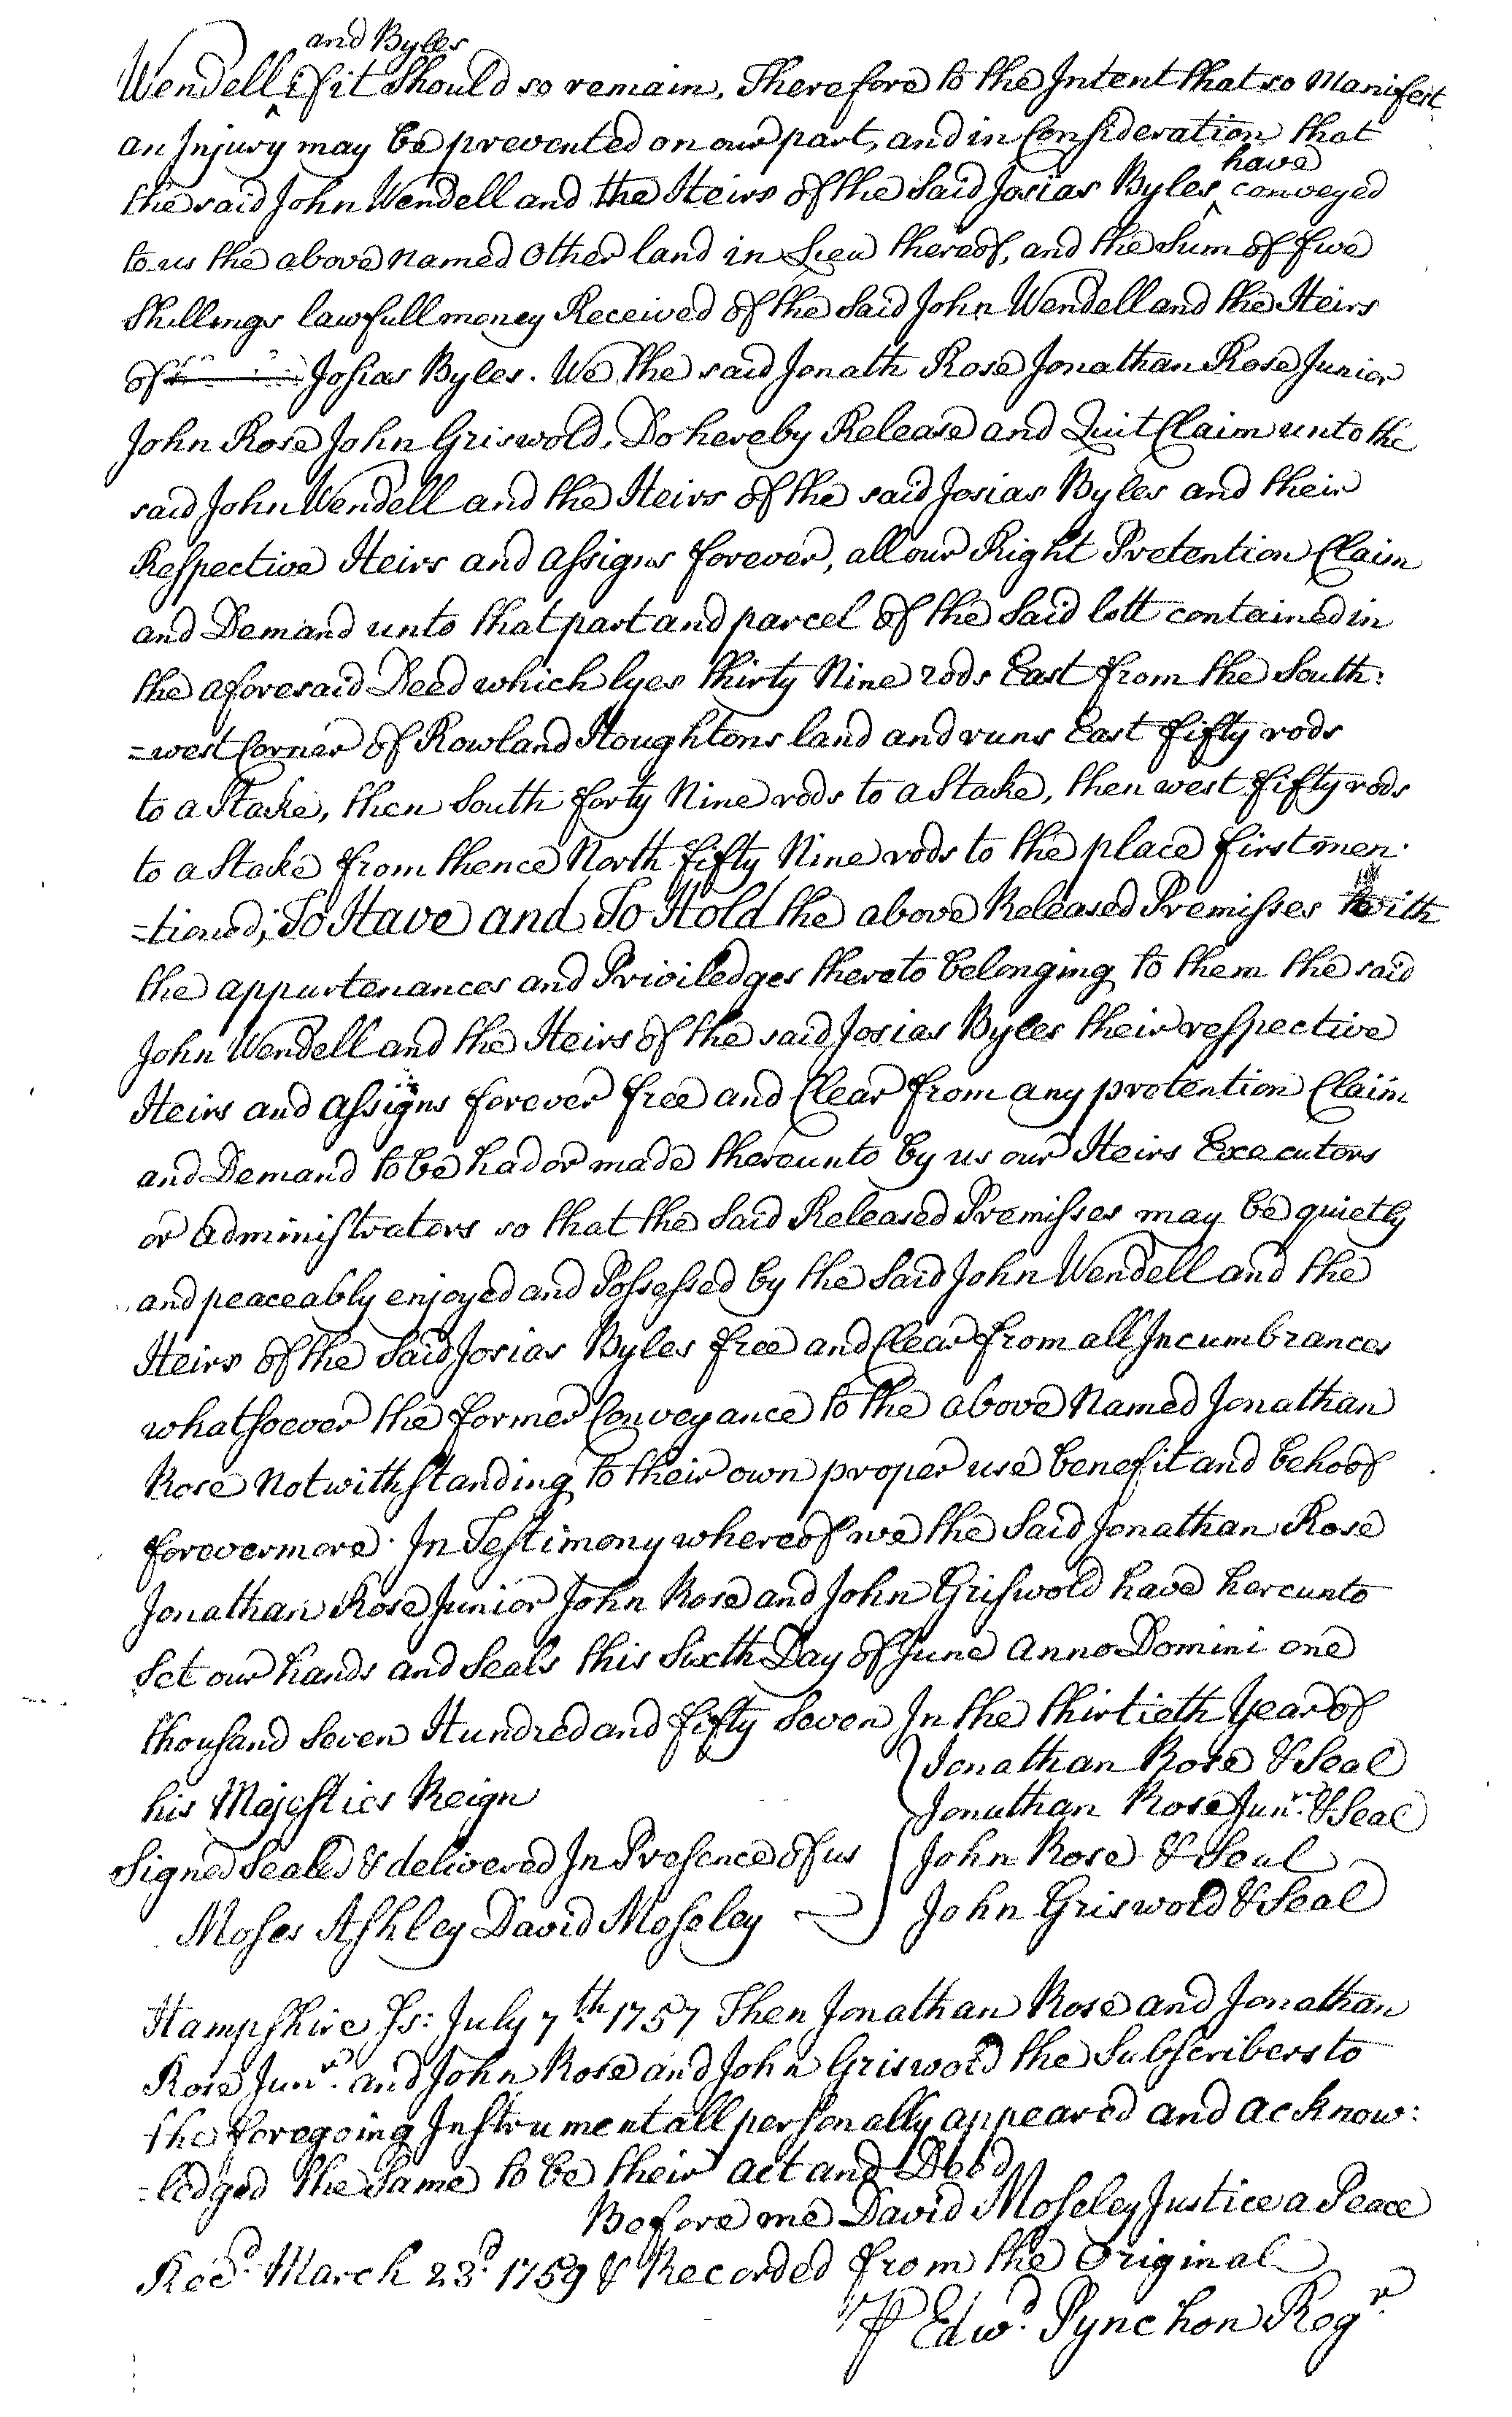 and Byles
Wendell if it Should so remain, Therefore to the Intent that so Manifest
an Injury may be prevented on our part, and in Consideration that
have
the said John Wendell and the Heirs of the Said Josias Byles conveyed
to us the above named Other land in Lieu thereof, and the Sum of five
Shillings lawfull money Received of the Said John Wendell and the Heirs
of Josias Byles. We the said Jonath Rose Jonathan Rose Junior
John Rose John Griswold, Do hereby Release and Quit Claim unto the
said John Wendell and the Heirs of the said Josias Byles and their
Respective Heirs and assigns forever, all our Right Pretention Claim
and Demand unto that part and parcel of the Said lott contained in
the aforesaid Deed which lyes thirty Nine rods East from the South:
=west Corner of Rowland Houghtons land and runs East fifty rods
to a Stake, then South forty Nine rods to a Stake, then west fifty rods
to a Stake from thence North fifty Nine rods to the place first men
=tioned; To Have and To Hold the above Released Premisses with
the appurtenances and Priviledges thereto belonging to them the said
John Wendell and the Heirs of the said Josias Byles their respective
Heirs and assigns forever free and Clear from any pretention Claim
and Demand to be had or made thereunto by us our Heirs Executors
or administrators so that the Said Released Premisses may be quietly
and peaceably enjoyed and Possessed by the Said John Wendell and the
Heirs of the Said Josias Byles free and Clear from all Incumbrances
whatsoever the former Conveyance to the above Named Jonathan
Rose Notwithstanding to their own proper use benefit and behoof
forevermore. In Testimony whereof we the Said Jonathan Rose
Jonathan Rose Junior John Rose and John Griswold have hereunto
Set our hands and Seals this Sixth Day of June anno Domini one
thousand Seven Hundred and fifty Seven In the thirtieth Year of
his Majesties Reign
Jonathan Rose & Seal
Jonathan Rose Junr. & Seal
Signed Sealed & delivered In Presence of us
John Rose & Seal
Moses Ashley David Moseley
John Griswold & Seal
Hampshire Ss: July 7th. 1757 Then Jonathan Rose and Jonathan
Rose Junr. and John Rose and John Griswold the Subscribers to
the foregoing Instrument all personally appeared and acknow:
=ledged the Same to be their act and Deed
Before me David Moseley Justice a Peace
Recd. March 23d. 1759 & Recorded from the Original
P Edwd. Pynchon Regr.